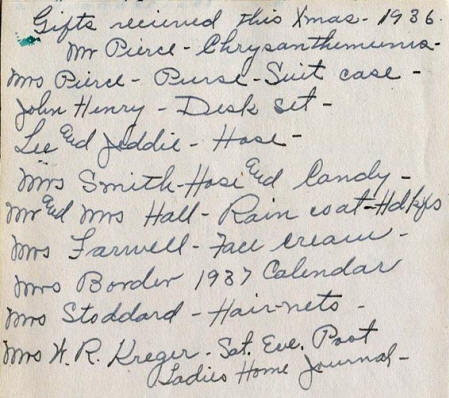 Gifts received this Xmas - 1936.
Mr Pierce - Chrysanthemums -
Mrs Pierce - Purse - Suit case -
John Henry - Desk set -
Lee and Jeddie - Hose -
Mrs Smith - Hose and Candy -
Mr and Mrs Hall - Rain coat - Hdkfs
Mrs Farwell - Face cream -
Mrs Border 1937 Calendar
Mrs Stoddard - Hair-nets -
Mrs W. R. Kreger - Sat. Eve. Post
Ladies Home Journal -